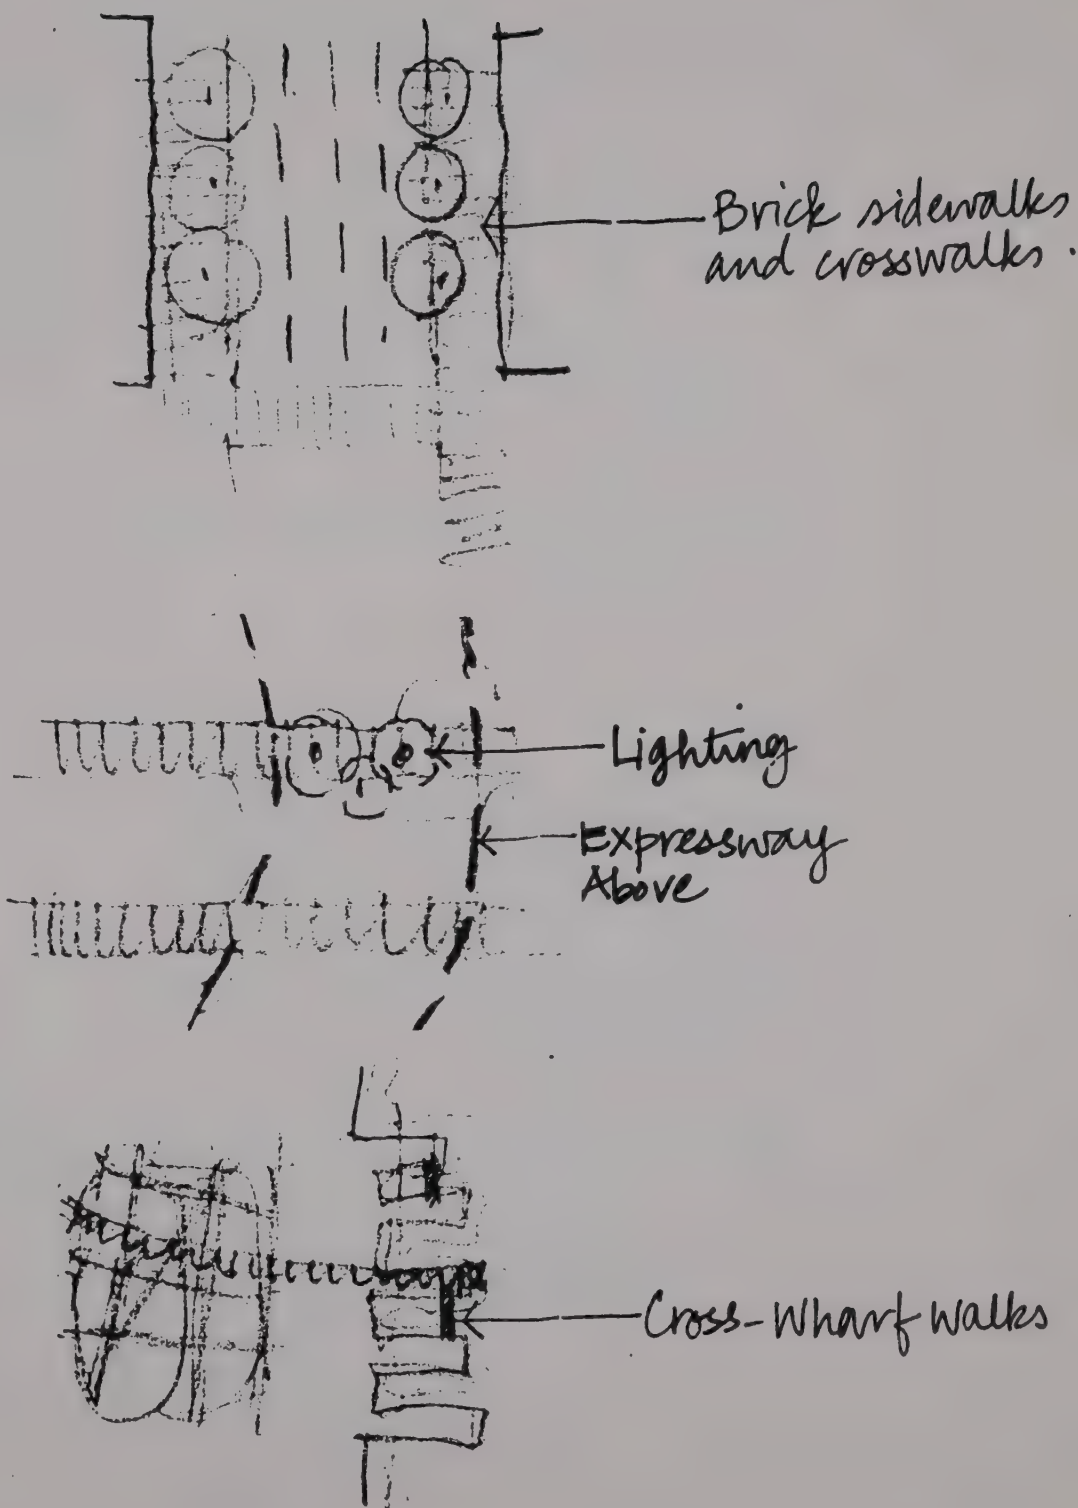 Brick sidewalks
and crosswalks.
Lighting
Expressway
Above
Cross-Wharf Walks